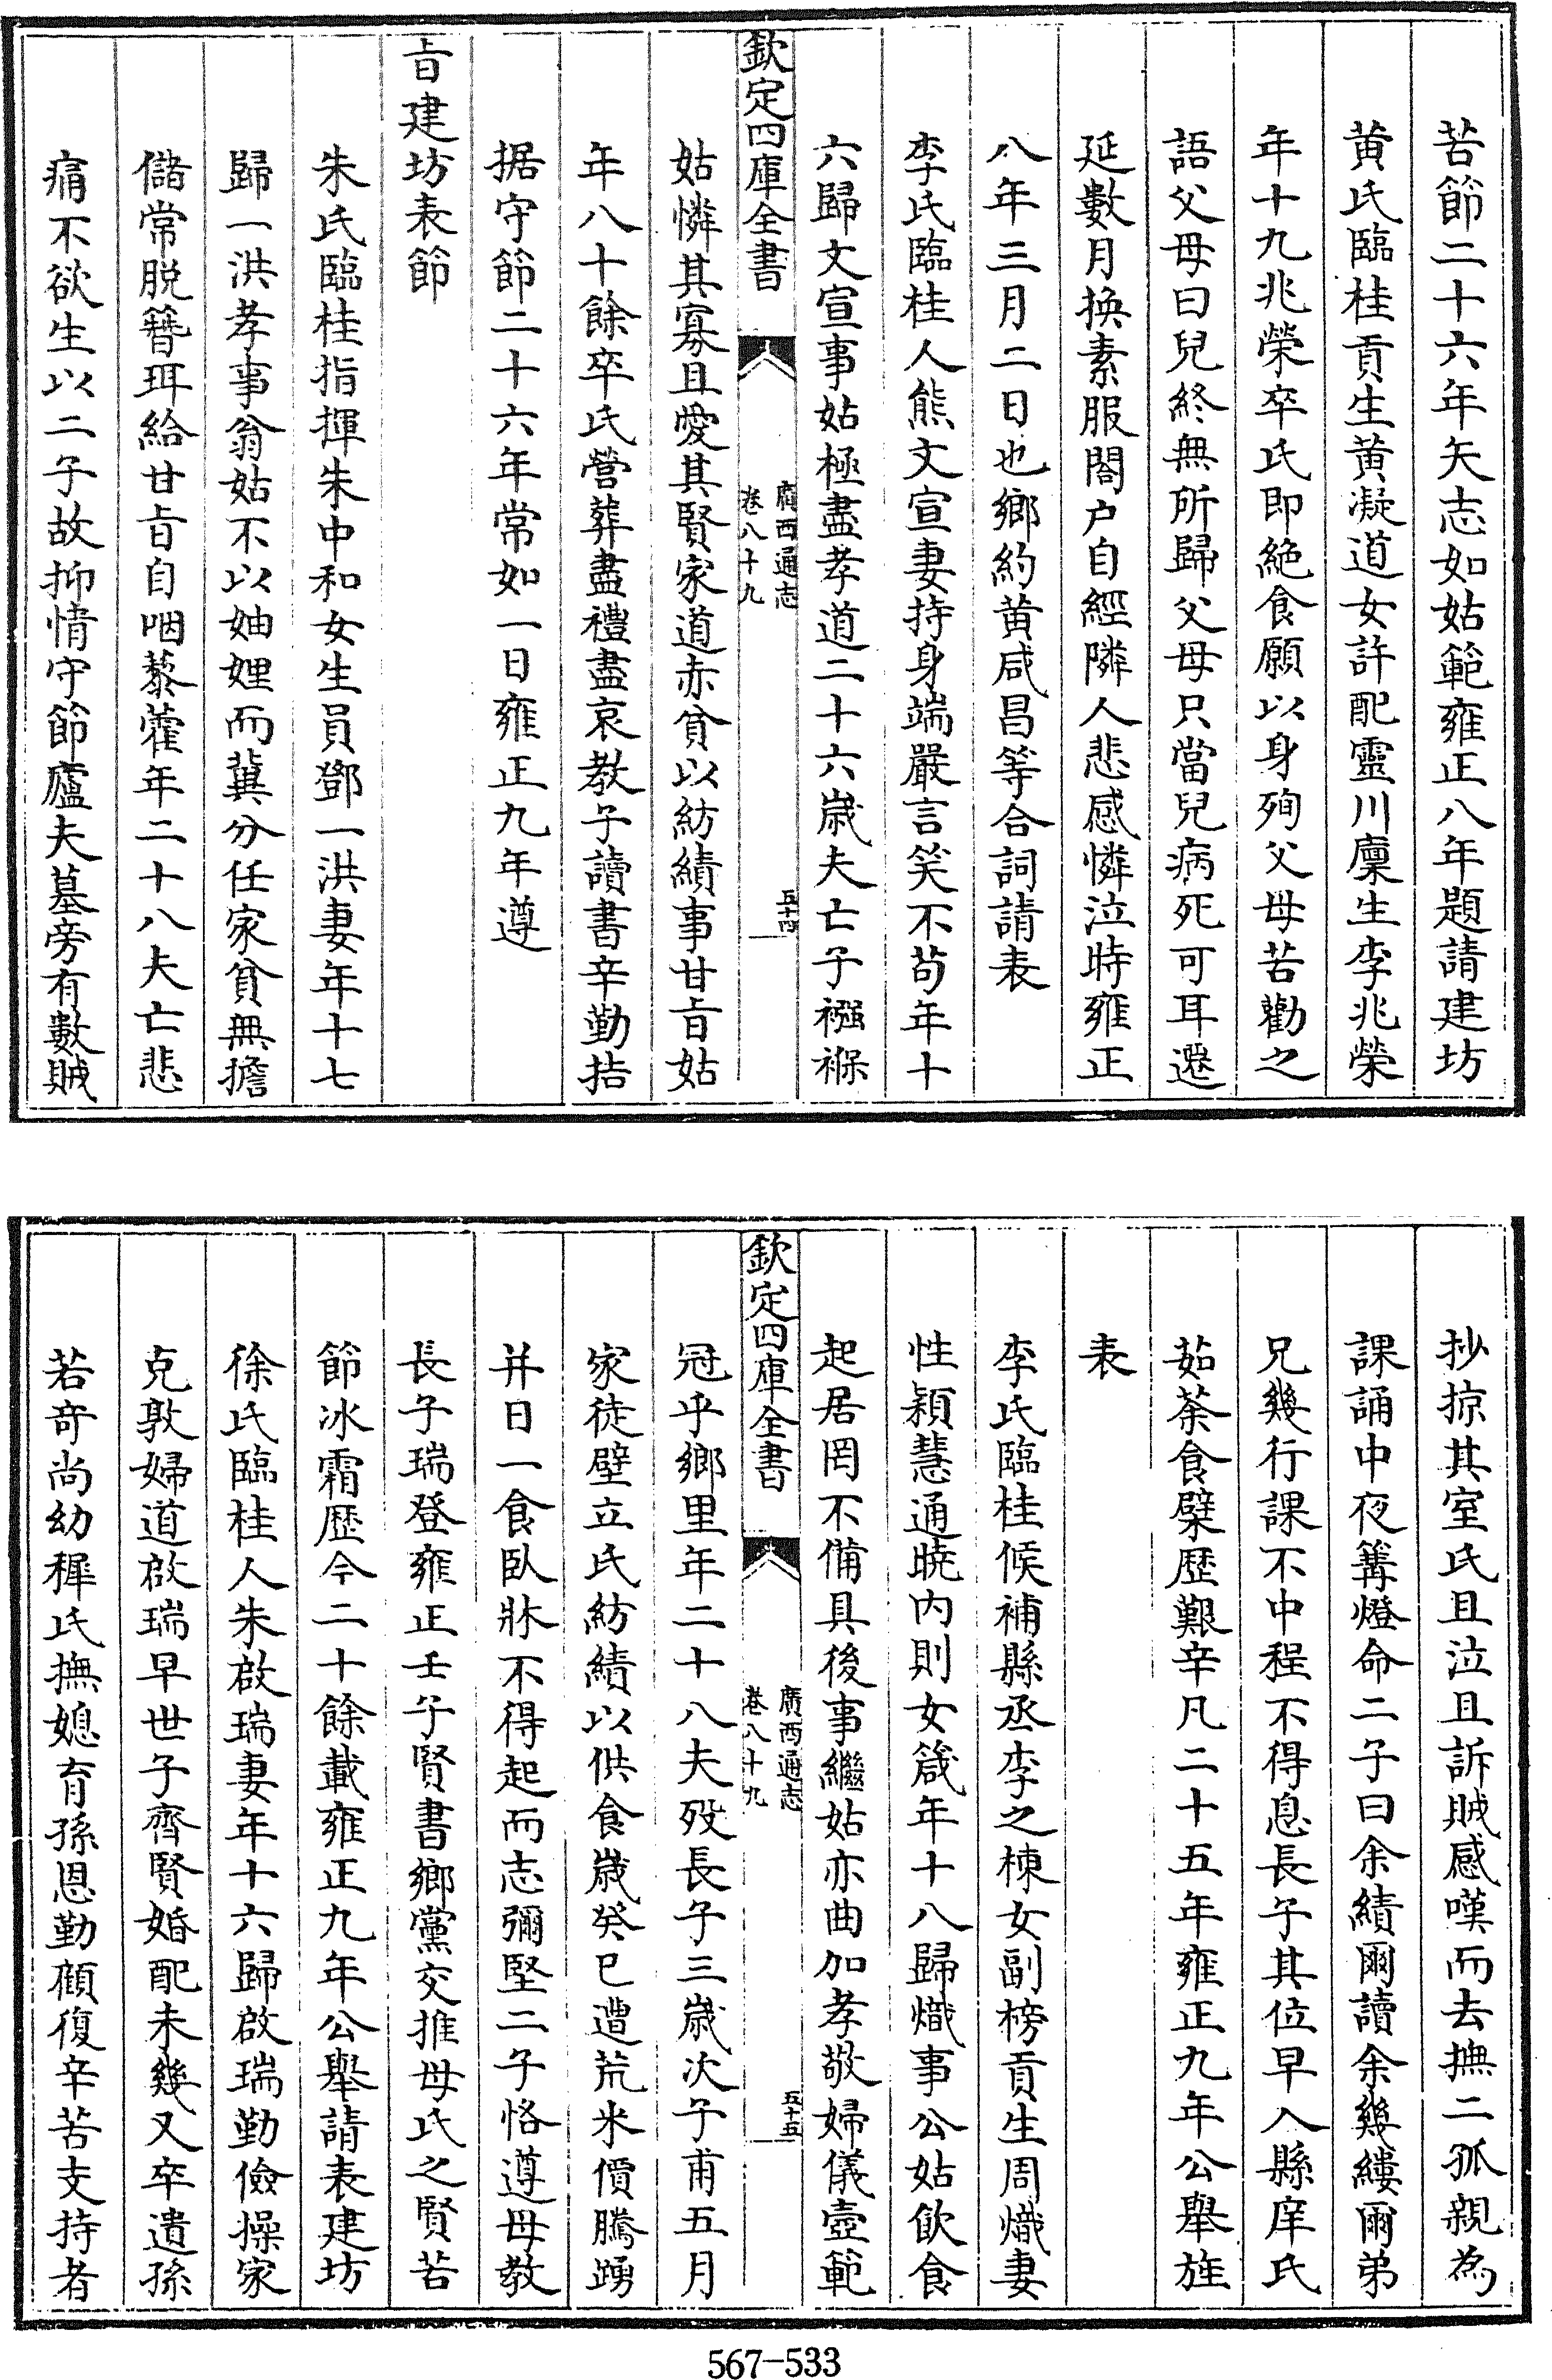 苦節二十六年矢志如姑範雍正八年題請建坊
黄氏臨桂貢生黄凝道女許配靈川廩生李兆榮
年十九兆榮卒氏即絶食願以身殉父母苦勸之
語父母曰兒終無所歸父母只當兒病死可耳遷
延數月换素服閤户自經隣人悲感憐泣時雍正
八年三月二日也鄉約黄咸昌等合詞請表
李氏臨桂人熊文宣妻持身端嚴言笑不苟年十
六歸文宣事姑極盡孝道二十六歲夫亡子襁褓
欽定四庫全書
廣西通志
卷八十九
五十四
姑憐其寡且愛其賢家道赤貧以紡績事甘旨姑
年八十餘卒氏營葬盡禮盡哀教子讀書辛勤拮
据守節二十六年常如一日雍正九年遵
旨建坊表節
朱氏臨桂指揮朱中和女生員鄧一洪妻年十七
歸一洪孝事翁姑不以妯娌而冀分任家貧無擔
儲常脱簪珥給甘旨自咽藜藿年二十八夫亡悲
痛不欲生以二子故抑情守節廬夫墓旁有數賊
抄掠其室氏且泣且訴賊感嘆而去撫二孤親為
課誦中夜篝燈命二子曰余績爾讀余幾縷爾弟
兄幾行課不中程不得息長子其位早入縣庠氏
茹荼食檗歷艱辛凡二十五年雍正九年公舉旌
表
李氏臨桂候補縣丞李之棟女副榜貢生周熾妻
性穎慧通曉内則女箴年十八歸熾事公姑飲食
起居罔不備具後事繼姑亦曲加孝敬婦儀壼範
欽定四庫全書
廣西通志
卷八十九
五十五
冠乎鄉里年二十八夫殁長子三歲次子甫五月
家徒壁立氏紡績以供食歲癸巳遭荒米價騰踴
并日一食臥牀不得起而志彌堅二子恪遵母教
長子瑞登雍正壬子賢書鄉黨交推母氏之賢苦
節冰霜歷今二十餘載雍正九年公舉請表建坊
徐氏臨桂人朱啟瑞妻年十六歸啟瑞勤儉操家
克敦婦道啟瑞早世子齊賢婚配未幾又卒遺孫
若奇尚幼穉氏撫媳育孫恩勤顧復辛苦支持者
567-533